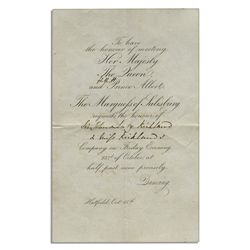 To have
the honour of meeting
Her Majesty
The Queen
and Prince Albert
The Marquess of Salisbury
requests the honour of
& Kirkland
& Miss Kirkland's
Company on Friday Evening
23rd of October at
half past nine precisely
Dancing
Hatfield, Oct